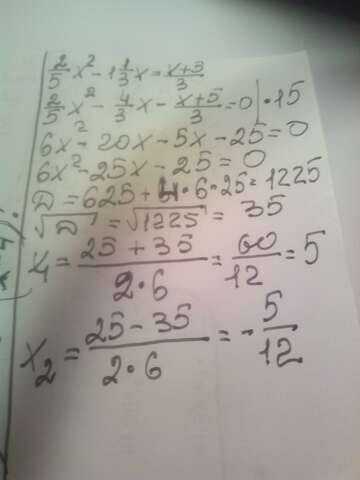 2/5 x² - 1 1/3 x = x+3/3
2/5 x² - 4/3 x - x+5/3 = 0 | · 15
6x² - 20x - 5x - 25 = 0
6x² - 25x - 25 = 0
D = 625 + 4 · 6 · 25 = 1225
√D = √1225 = 35
x₁ = 25 + 35/2 · 6 = 60/12 = 5
x₂ = 25 - 35/2 · 6 = - 5/12